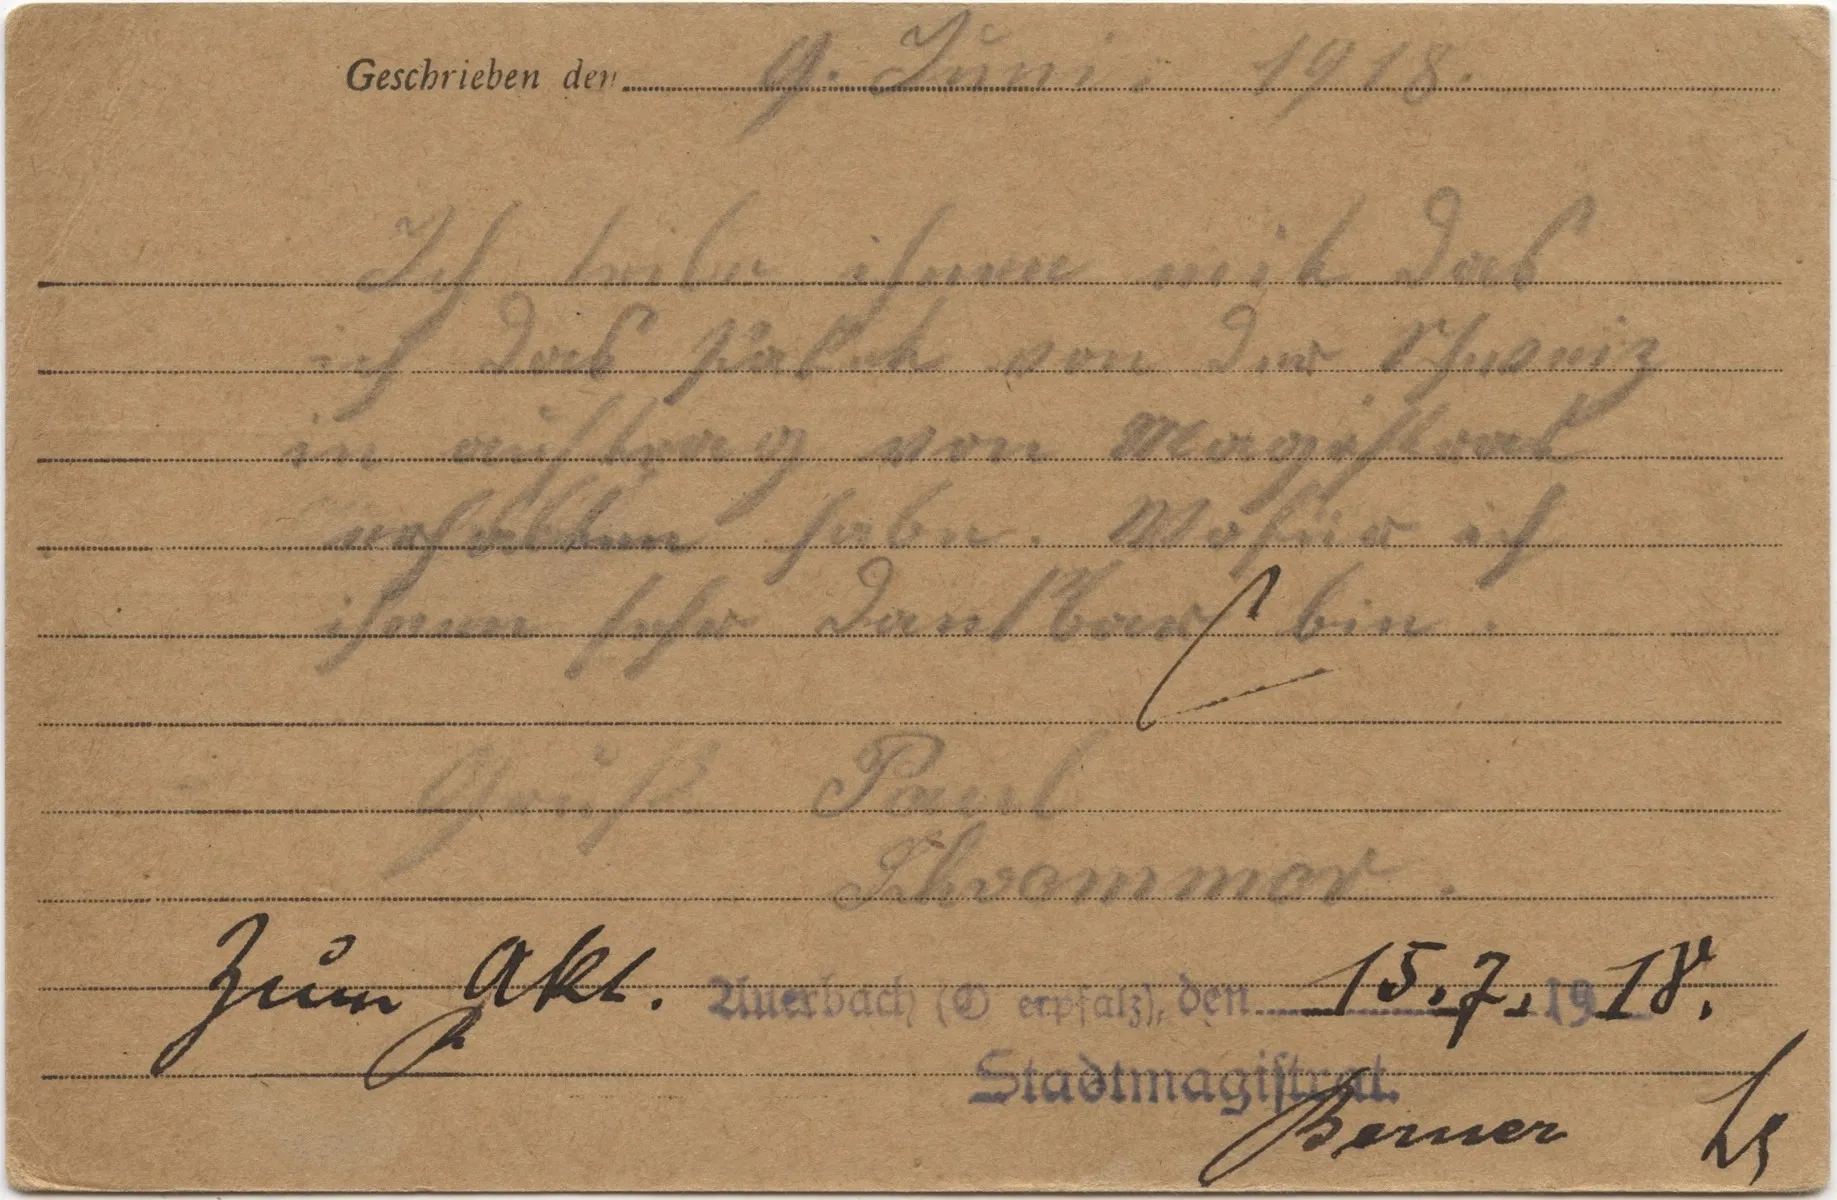 Geschrieben den 9. Juni 1918.
Ich teile ihnen mit das
ich das Paket von der Schweiz
in auftrag von Magistrat
erhalten habe. Wofür ich
ihnen sehr dankbar bin.
Gruß Paul
Zum Akt. Auerbach (Oberpfalz), den 15.7. 1918.
Stadtmagistrat.